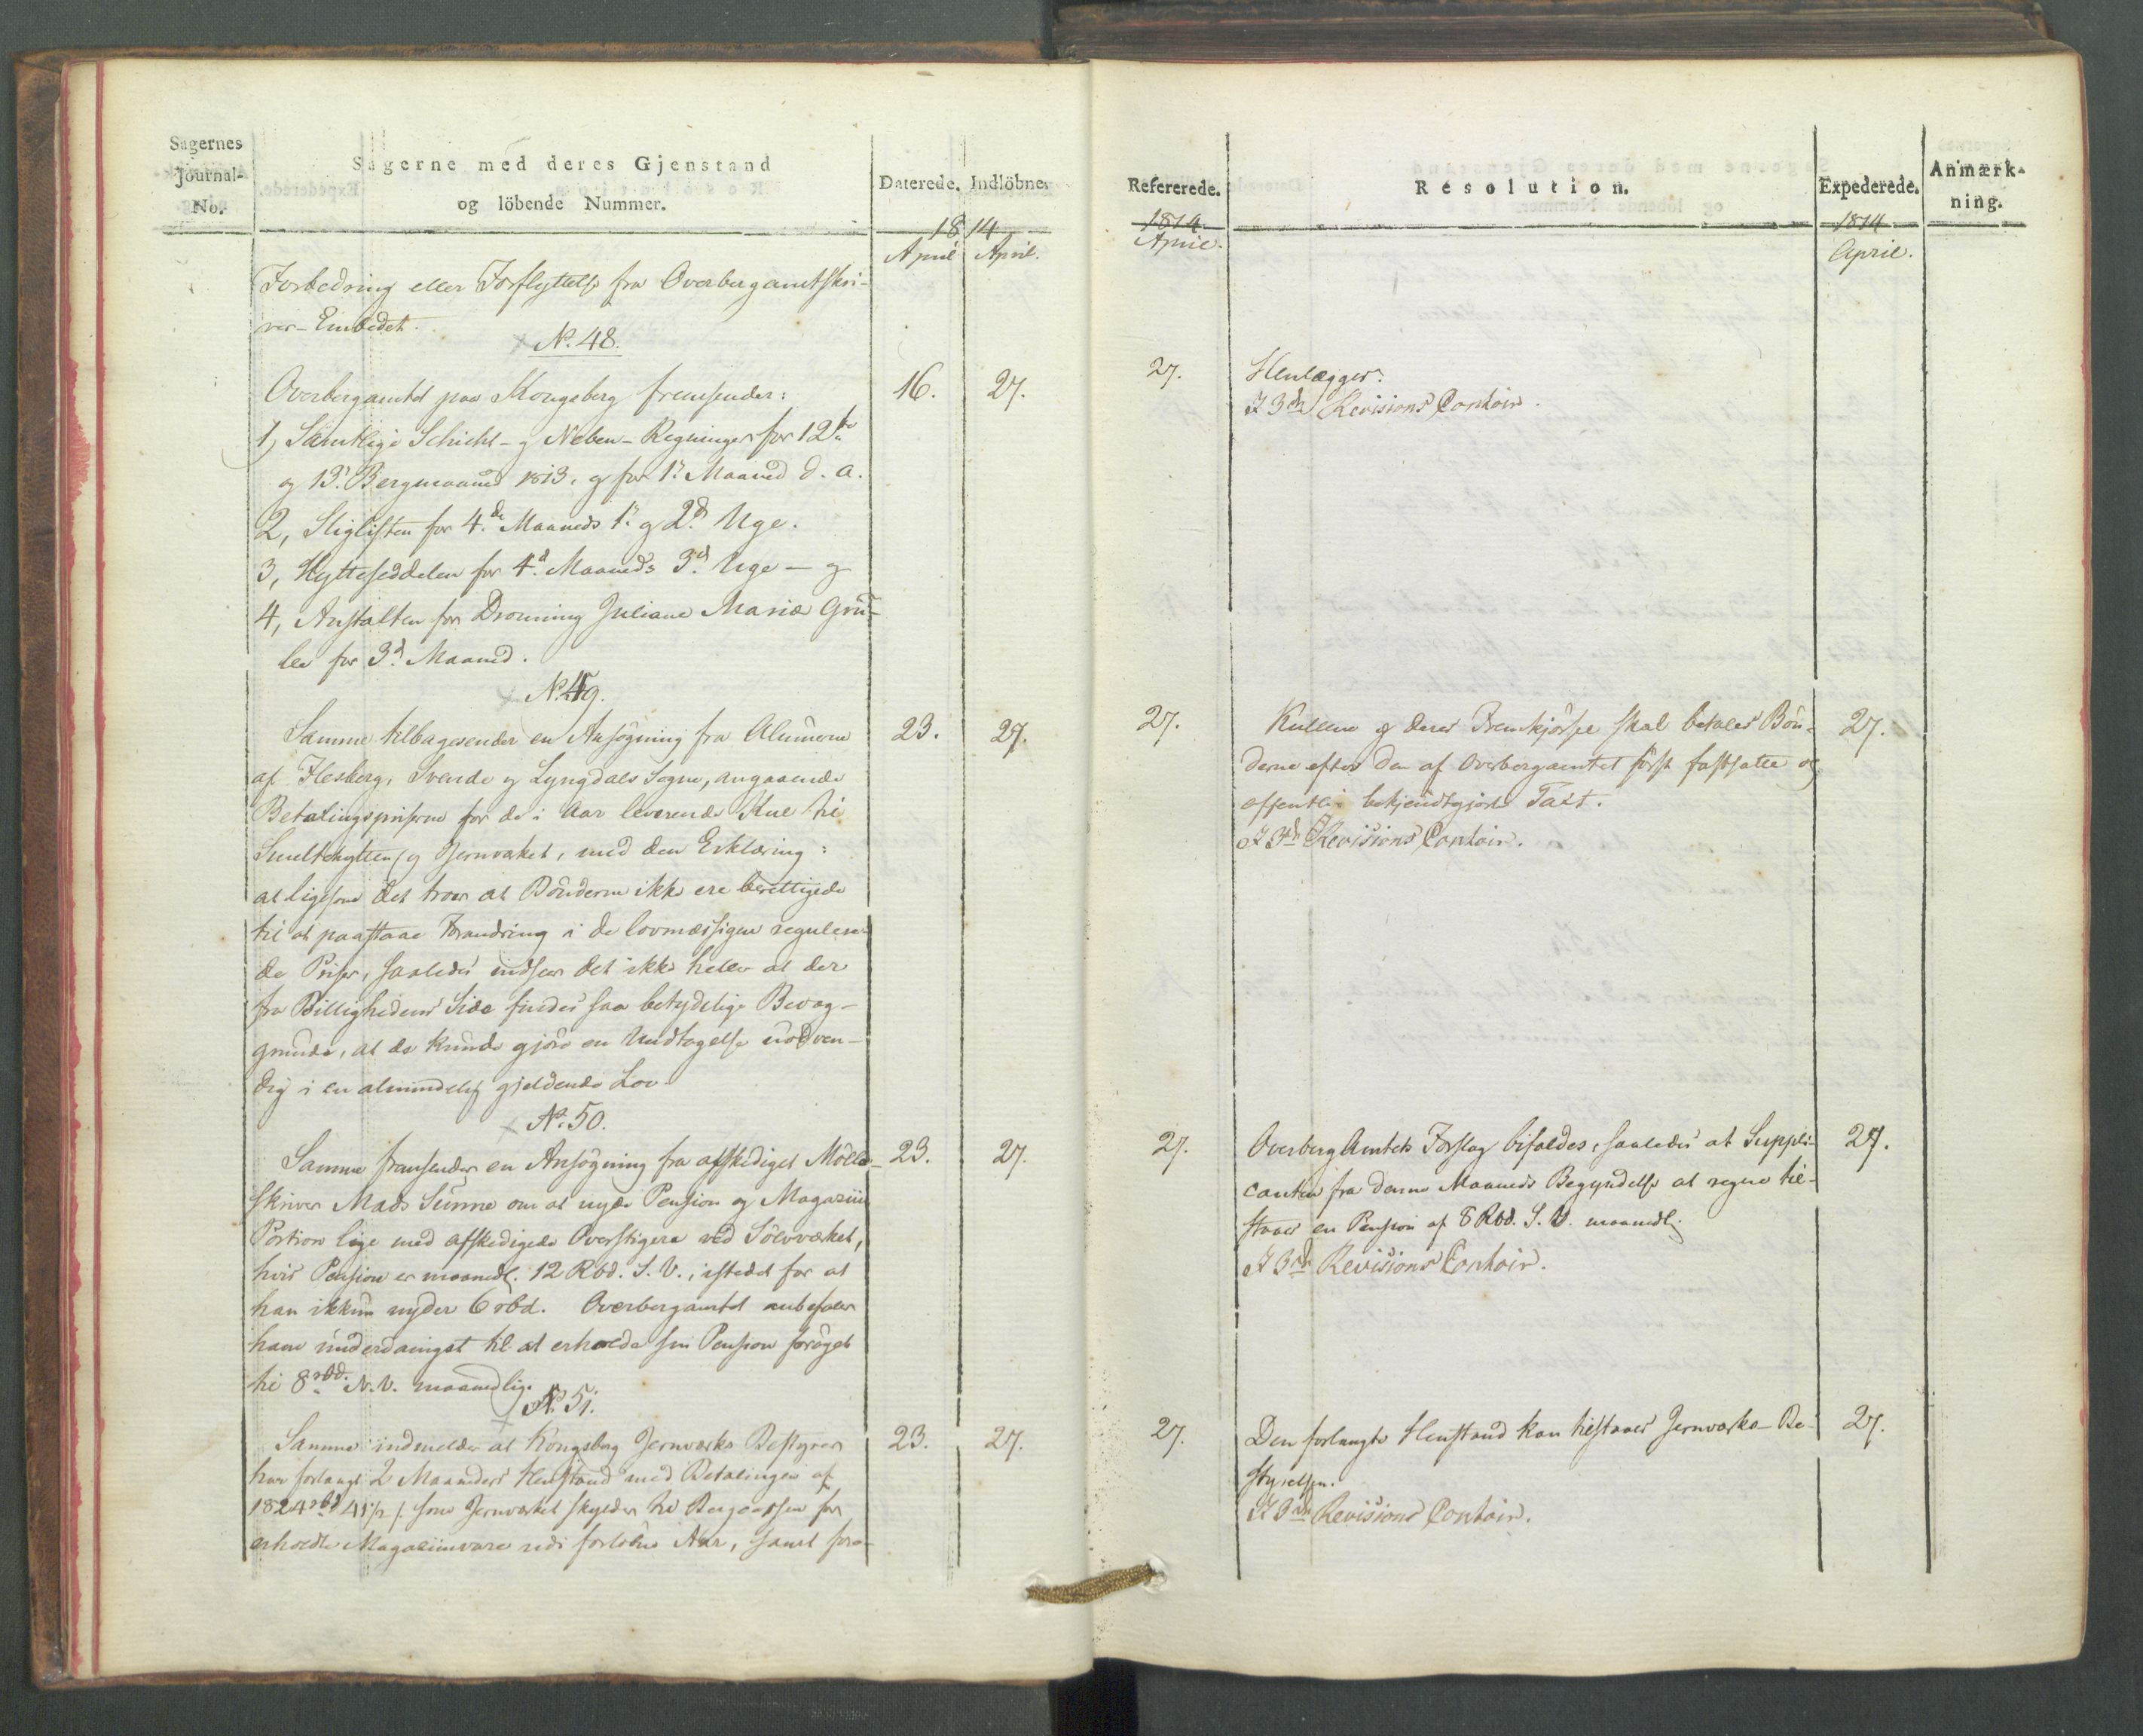 Sagernes
Journal-
No.
Sagerne med deres Gjenstand
og löbende Nummer.
Daterede. Indlöbne.
1814
April April.
Forbedring eller Forflyttelse fra Overbergamtskri-
ver-Embedet.
No. 48.
Overbergamtet paa Kongsberg fremsender: 16. 27.
1, Samtlige Schicht- og Neben-Regninger for 12te
og 13. Bergmaaned 1813, og for 1. Maaned d. A.
2, Sligliften for 4de Maaneds 1. og 2d Uge.
3, Hytteseddelen for 4d Maaneds 3d Uge - og
4, Anstalten for Dronning Juliane Maria Gru-
be for 3d Maaned.
No. 49.
Samme tilbagesender en Ansögning fra Almuerne 23. 27.
af Flesberg, Svende og Lyngdals Sogne, angaaende
Betalingspriserne for de i Aar leverende Kul til
Smeltehytten og Jernværket, med den Erklæring:
at ligesom det troer at Bönderne ikke ere berettigede
til at paastaae Forandring i de lovmæssigen reguleren-
de Priser, saaledes indseer det ikke heller at der
fra Billighedens Side findes saa betydelige Bevæg-
grunde, at de kunde gjöre en Undtagelse nödven-
dig i en almindelig gjeldende Lov.
No. 50.
Samme fremsender en Ansögning fra afskediget Mölle- 23. 27.
skriver Mads Sunne om at nyde Pension og Magaziin
Portion lige med afskedigede Overstigere ved Sölvværket,
hvis Pension er maanedl. 12 Rbd. S. V., istedet for at
han ikkun nyder 6 rbd. Overbergamtet anbefaler
ham underdanigst til at erholde sin Pension foröget
til 8 rbd. N. V. maanedlig.
No. 51.
Samme indmelder at Kongsberg Jernværks Bestyrer 23. 27.
har forlangt 2 Maaneders Henstand med Betalingen af
1824 rbd 41 1/2 s. som Jernværket skylder til Bergcassen for
erholdte Magaziinvare udi forlöbne Aar, samt fore-
Refererede.
1814
April.
Resolution.
Expederede.
1814
April.
Anmærk-
ning.
27. Henlægges.
I 3die Revisions Contoir.
27. Kullene og deres Fremkjörsel skal betales Bön- 27.
derne efter den af Overbergamtet först fastsatte og
offentlig bekjendtgjorte Taxt.
I 3die Revisions Contoir.
27. OverbergAmtets Forslag bifaldes, saaledes at Suppli- 27.
canten fra denne Maaneds Begyndelse at regne til-
staaes en Pension af 8 Rbd. S. V. maanedl.
I 3die Revisions Contoir.
27. Den forlangte Henstand kan tilstaaes Jernværks-Be- 27.
styrelsen.
I 3die Revisions Contoir.